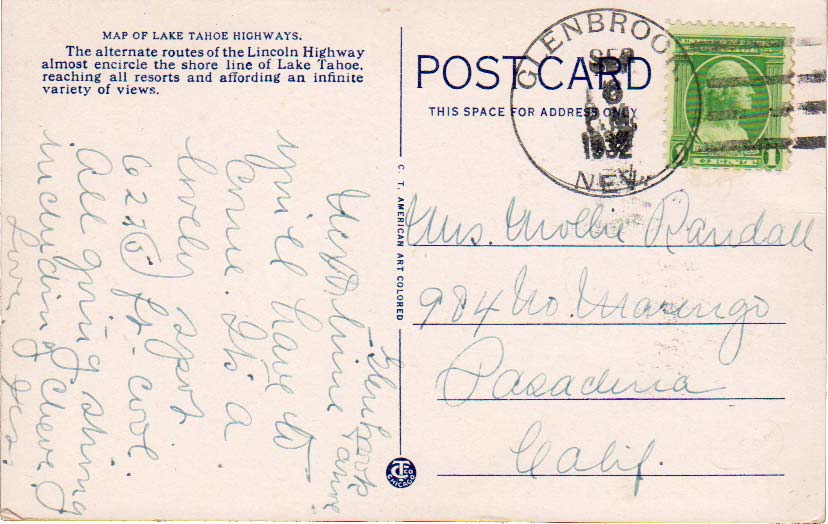 MAP OF LAKE TAHOE HIGHWAYS.
The alternate routes of the Lincoln Highway
almost encircle the shore line of Lake Tahoe,
reaching all resorts and affording an infinite
variety of views.
POST CARD
THIS SPACE FOR ADDRESS ONLY
GLENBROOK
SEP
6
P.M.
1932
NEV.
1 CENT 1
C. T. AMERICAN ART COLORED
CT CO
CHICAGO
Glenbrook
Tahoe
Next time
you'll have to
come. It's a
lovely spot
6225 ft - cool
All going strong
including
Love,
Mrs. Mollie Randall
984 No. Marengo
Pasadena
Calif.